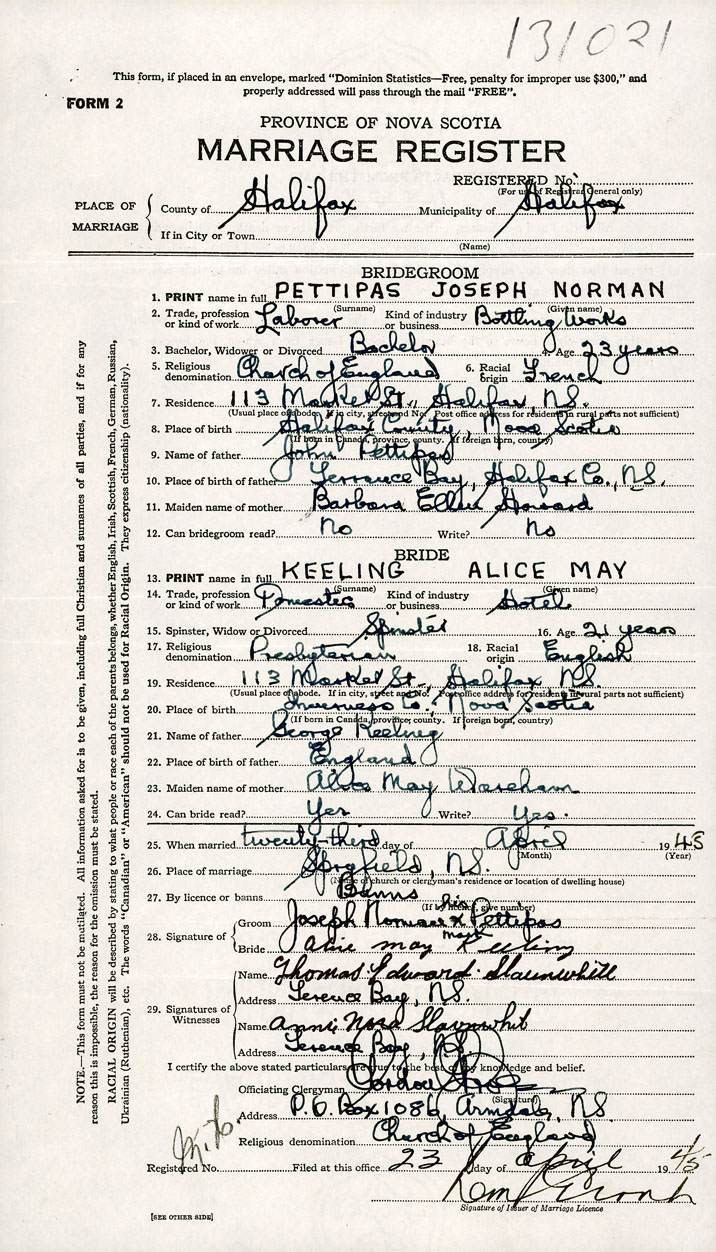 131021
This form, if placed in an envelope, marked "Dominion Statistics—Free, penalty for improper use $300," and
properly addressed will pass through the mail "FREE".
FORM 2
PROVINCE OF NOVA SCOTIA
MARRIAGE REGISTER
REGISTERED No.
(For use of Registrar General only)
PLACE OF MARRIAGE
County of Halifax Municipality of Halifax
If in City or Town
(Name)
BRIDEGROOM
1. PRINT name in full PETTIPAS JOSEPH NORMAN
(Surname) (Given name)
2. Trade, profession or kind of work Laborer Kind of industry or business Bottling Works
3. Bachelor, Widower or Divorced Bachelor 4. Age 23 years
5. Religious denomination Church of England 6. Racial origin French
7. Residence 113 Market St., Halifax, N.S.
(Usual place of abode. If in city, street and No. Post office address for resident in rural parts not sufficient)
8. Place of birth Halifax County, Nova Scotia
(If born in Canada, province, county. If foreign born, country)
9. Name of father John Pettipas
10. Place of birth of father Terrance Bay, Halifax Co., N.S.
11. Maiden name of mother Barbara Ellen Howard
12. Can bridegroom read? No Write? No
BRIDE
13. PRINT name in full KEELING ALICE MAY
(Surname) (Given name)
14. Trade, profession or kind of work Domestic Kind of industry or business Hotel
15. Spinster, Widow or Divorced Spinster 16. Age 21 years
17. Religious denomination Presbyterian 18. Racial origin English
19. Residence 113 Market St., Halifax N.S.
(Usual place of abode. If in city, street and No. Post office address for resident in rural parts not sufficient)
20. Place of birth Inverness Co. Nova Scotia
(If born in Canada, province, county. If foreign born, country)
21. Name of father George Keeling
22. Place of birth of father England
23. Maiden name of mother Alice May Wareham
24. Can bride read? Yes Write? Yes.
25. When married twenty-third day of April 1945
(Month) (Year)
26. Place of marriage N.S.
(Name of church or clergyman's residence or location of dwelling house)
27. By licence or banns Banns
(If by licence, give number)
28. Signature of
Groom Joseph Norman his x mark Pettipas
Bride Alice may Keeling
29. Signatures of Witnesses
Name Thomas Edward Slaunwhite
Address Terence Bay, N.S.
Name Annie Nora Slaunwhit
Address Terence Bay, N.S.
I certify the above stated particulars are true to the best of my knowledge and belief.
Officiating Clergyman Gordon
(Signature)
Address P.O. Box 1086, Armdale, N.S.
Religious denomination Church of England
Registered No. Filed at this office 23 day of April 1945
Signature of Issuer of Marriage Licence
[SEE OTHER SIDE]
NOTE.—This form must not be mutilated. All information asked for is to be given, including full Christian and surnames of all parties, and if for any
reason this is impossible, the reason for the omission must be stated.
RACIAL ORIGIN will be described by stating to what people or race each of the parents belongs, whether English, Irish, Scottish, French, German, Russian,
Ukrainian (Ruthenian), etc. The words "Canadian" or "American" should not be used for Racial Origin. They express citizenship (nationality).